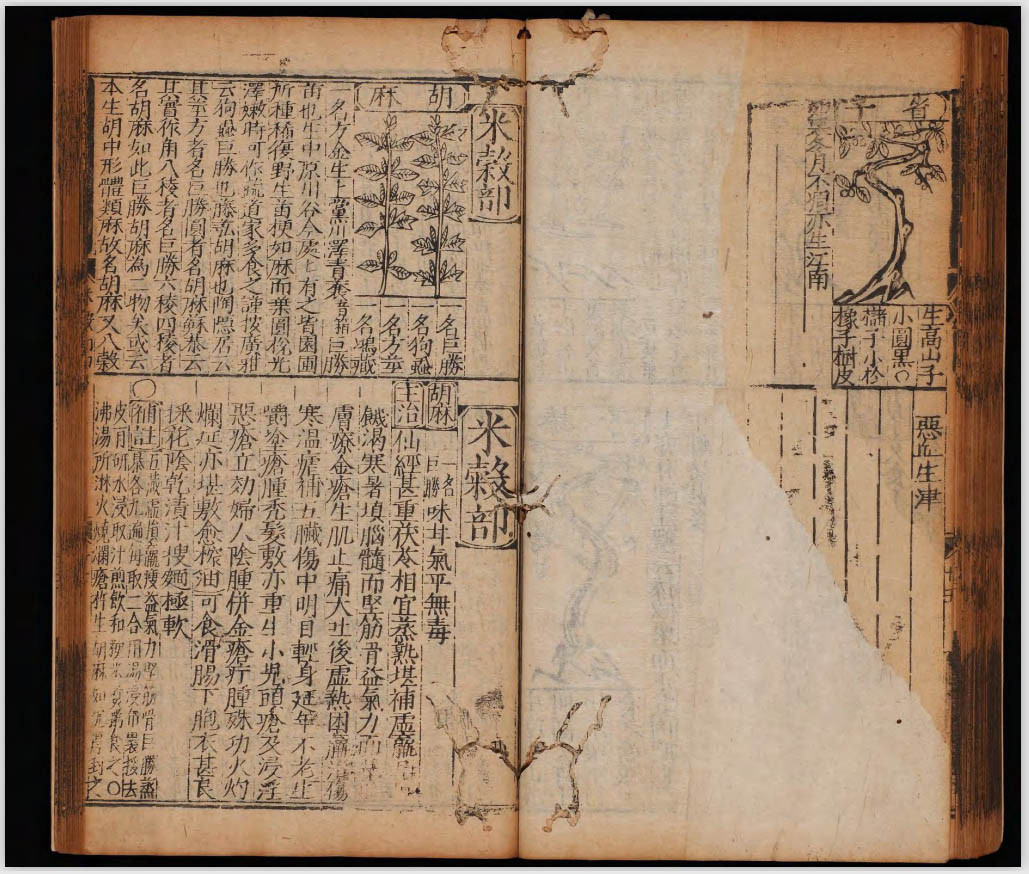 子
霜雪冬月不凋亦生江南
生高山子
小圓黑○
櫧子小於
橡子樹皮
惡血生津
米穀部
胡麻
名巨勝
名狗蝨
名方莖
名鴻藏
一名方金生上黨川澤青蘘音箱巨勝
苗也生中原川谷今處處有之皆園圃
所種稀復野生苗梗如麻而葉圓銳光
澤嫩時可作蔬道家多食之謹按廣雅
云狗蝨巨勝也藤弘胡麻也陶隱居云
其莖方者名巨勝圓者名胡麻蘇恭云
其實作角八稜者名巨勝六稜四稜者
名胡麻如此巨勝胡麻為二物矣或云
本生胡中形體類麻故名胡麻又八穀
米穀部
胡麻 一名巨勝 味甘氣平無毒
主治 仙經甚重茯苓相宜蒸熟堪補虛羸
饑渴寒暑填腦髓而堅筋骨益氣力而
膚療金瘡生肌止痛大吐後虛熱困羸傷
寒溫瘧補五臟傷中明目輕身延年不老生
嚼塗瘡腫禿髮敷亦重生小兒頭瘡及浸淫
惡瘡立効婦人陰腫併金瘡疔腫殊功火灼
爛延亦堪敷愈榨油可食滑腸下胞衣甚良
採花陰乾漬汁搜麪極軟
○ 五臟虛損羸瘦益氣力堅筋骨巨勝蒸
暴各九遍每取二合用湯浸布裹挼去
皮用研水浸取汁煎飲和粳米煮粥食之○
沸湯所淋火燒爛瘡杵生胡麻如泥厚封之